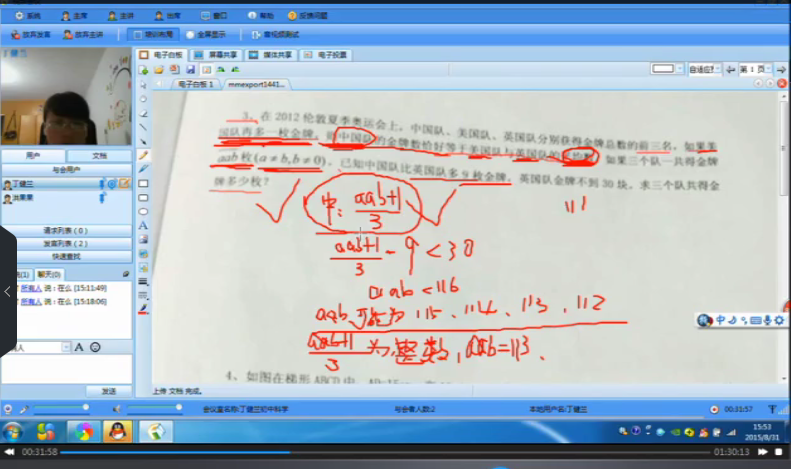 系统 主席 主讲 出席 窗口 帮助 反馈问题
放弃发言 放弃主讲 培训布局 全屏显示 音视频测试
丁健兰
电子白板 屏幕共享 媒体共享 电子投票
自适应 第 1 页
电子白板 1 mmexport1441...
用户 文档
与会用户
丁健兰
洪果果
请求列表（0）
发言列表（2）
快速查找
(1) 聊天(0)
所有人 说：在么 [15:11:49]
所有人 说：在么 [15:18:06]
人 A
发送
3、在 2012 伦敦夏季奥运会上，中国队、美国队、英国队分别获得金牌总数的前三名，如果美
国队再多一枚金牌，则中国队的金牌数恰好等于美国队与英国队的 如果三个队一共得金牌
aab 枚（a≠b,b≠0），已知中国队比英国队多 9 枚金牌，英国队金牌不到 30 块，求三个队共得金
牌多少枚？
中: aab+1/3
111
aab+1/3 - 9 < 30
aab < 116
aab 可能为 115、114、113、112
aab+1/3 为整数, aab=113、
4、如图在梯形 ABCD 中
上传 文档 完成。
中
会议室名称:丁健兰初中科学 与会者人数:2 本地用户名:丁健兰 00:31:57
15:53
2015/8/31
00:31:58 01:30:13